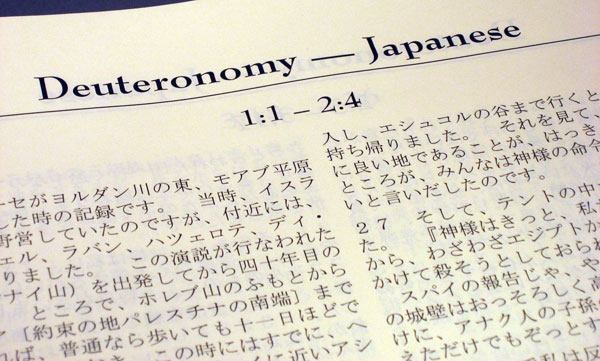 Deuteronomy — Japanese
1:1 – 2:4
ーセがヨルダン川の東、モアブ平原
した時の記録です。 当時、イスラ
野営していたのですが、付近には、
ェル、ラバン、ハツェロテ、ディ・
りました。 この演説が行なわれた
ナイ山）を出発してから四十年目の
ところで、ホレブ山のふもとから
［約束の地パレスチナの南端］まで
は、普通なら歩いても十一日ほどで
この時にはすでに、ヘ
に近いアシ
入し、エシュコルの谷まで行くと
持ち帰りました。 それを見て、
に良い地であることが、はっき
ところが、みんなは神様の命令
いと言いだしたのです。
27 そして、テントの中
た。 『神様はきっと、私
から、わざわざエジプトか
かけて殺そうとしておられ
スパイの報告じゃ、や
の城壁はおっそろしく高
けに、アナク人の子孫
えただけでもぞっとす